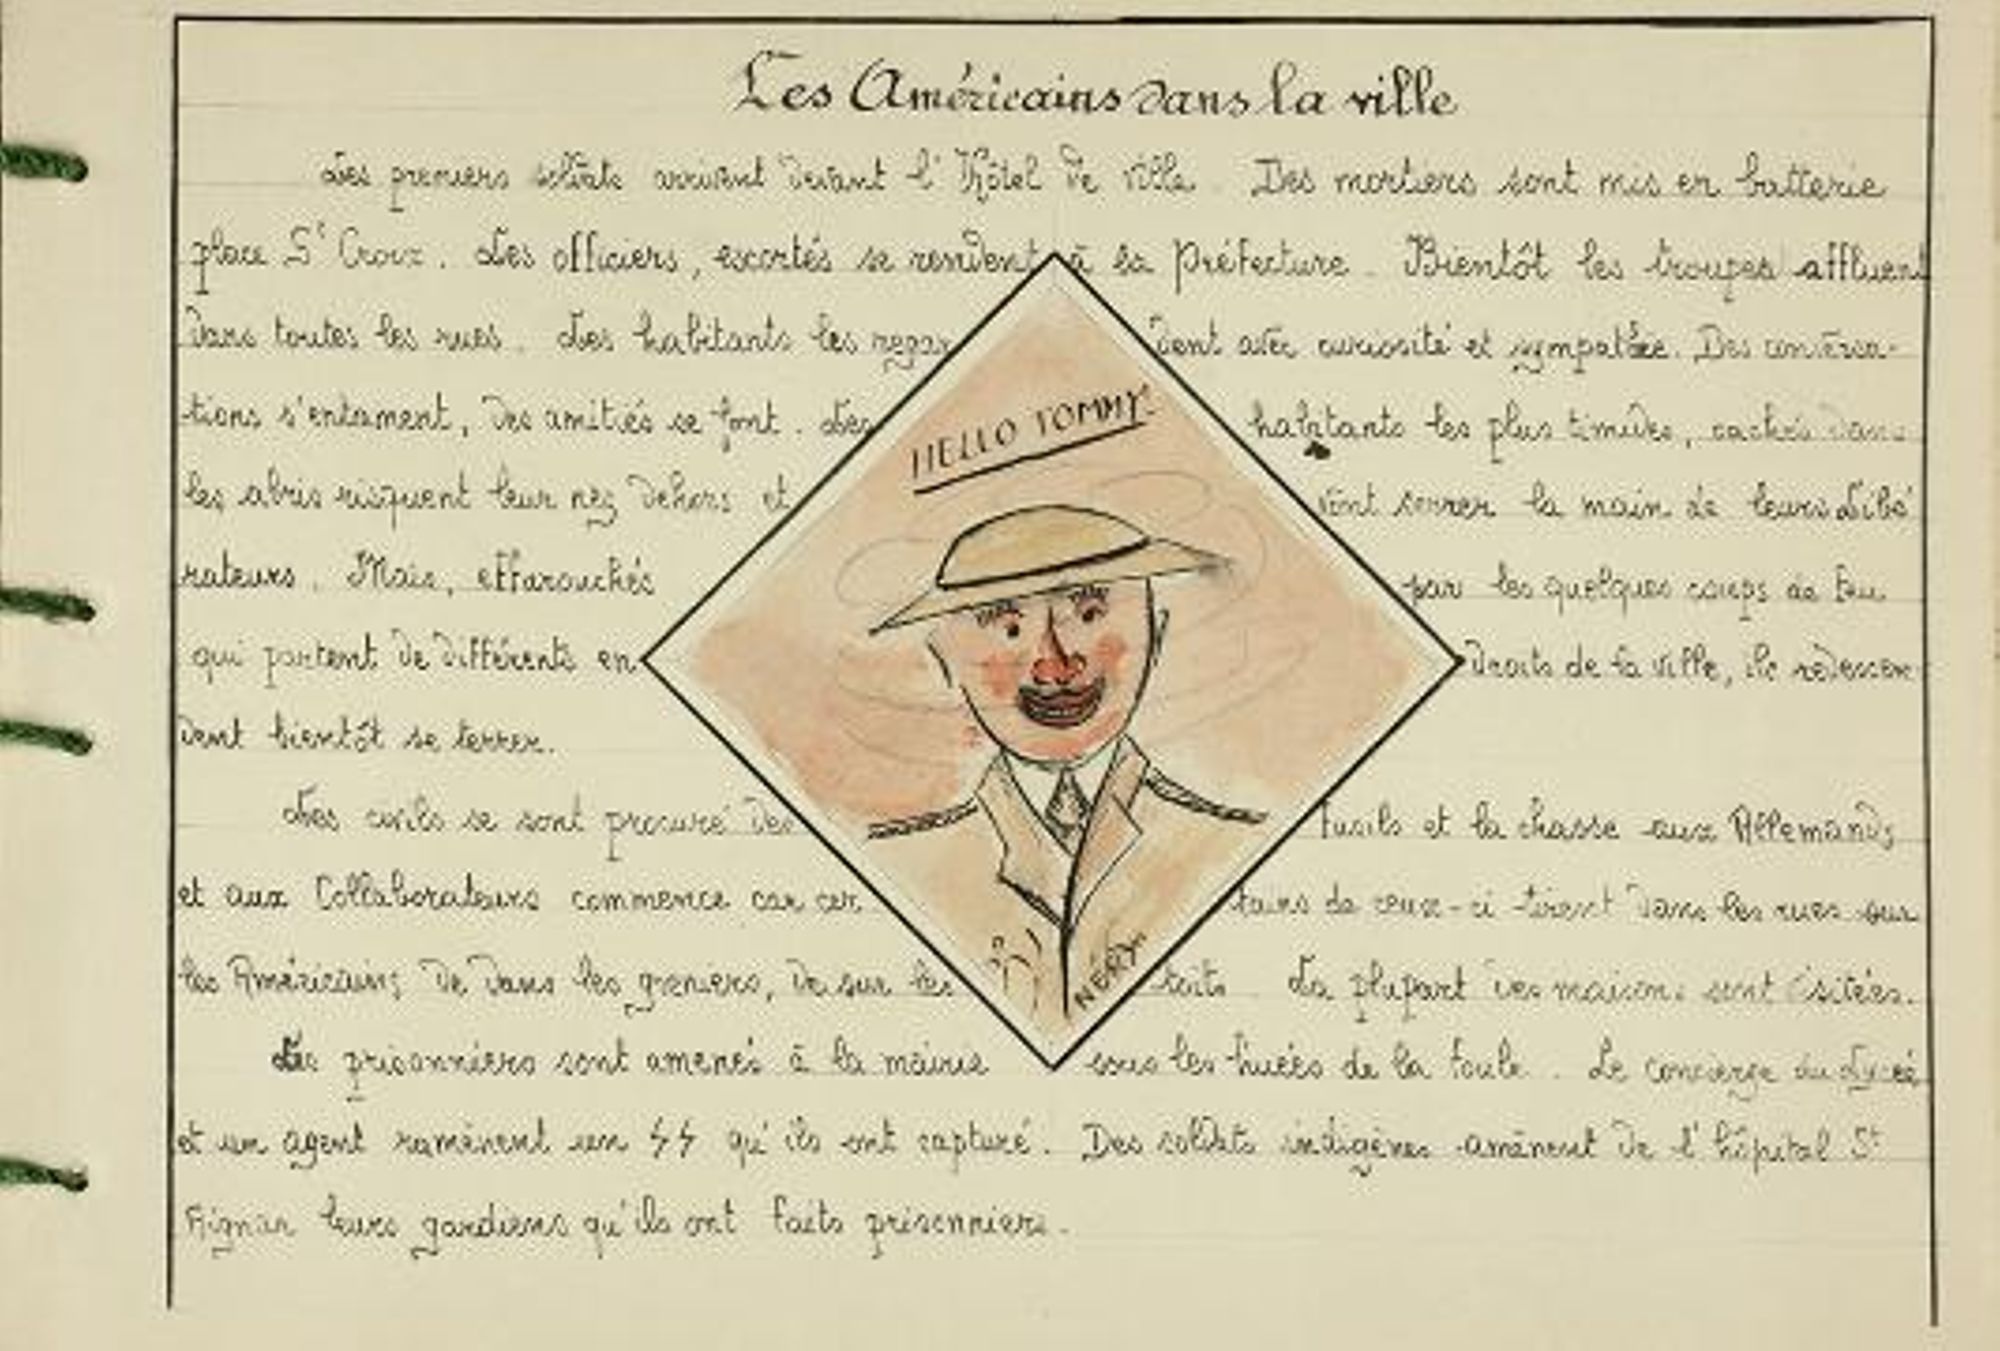 Les Américains dans la ville
Les premiers soldats arrivent devant l'Hôtel de ville. Des mortiers sont mis en batterie
place St Croix. Les officiers, escortés se rendent à la Préfecture. Bientôt les troupes affluent
dans toutes les rues. Les habitants les regardent avec curiosité et sympathie. Des conversa-
-tions s'entament, des amitiés se font. Les habitants les plus timides, cachés dans
les abris risquent leur nez dehors et vont serrer la main de leurs Libé
rateurs. Mais, effarouchés par les quelques coups de feu
qui partent de différents endroits de la ville, ils redescen
dent bientôt se terrer.
HELLO TOMMY!
Les civils se sont procuré des fusils et la chasse aux Allemands
et aux Collaborateurs commence car certains de ceux-ci tirent dans les rues sur
les Américains de dans les greniers, de sur les toits. La plupart des maisons sont visitées.
NÉRY
Les prisonniers sont amenés à la mairie sous les huées de la foule. Le concierge du Lycée
et un agent ramènent un SS qu'ils ont capturé. Des soldats indigènes amènent de l'hôpital St
Aignan leurs gardiens qu'ils ont faits prisonniers.